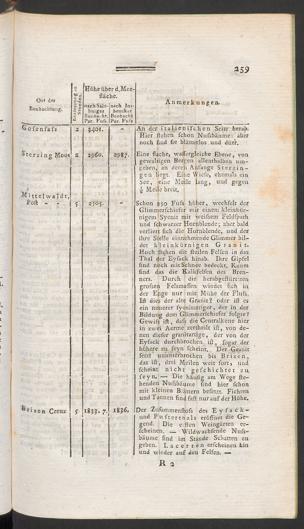 259
Ort der Beobachtung.
Entfernung in Stunden.
Höhe über d. Meeresfläche.
nach Par. Fuss.
nach Beobacht. Par. Fuss
Anmerkungen.
Gosensass 2 3401. "
An der italienischen Seite herab.
Hier stehen schon Nussbäume; aber
noch sind sie blätterlos und dürr.
Sterzing Moos 2 2960. 2987.
Eine flache, wassergleiche Ebene, von
gewaltigen Bergen allenthalben umgeben,
an deren Anfange Sterzingen
liegt. Eine Wiese, ehemals ein
See, eine Meile lang, und gegen
breit.
Mittewaldt,
Post 5 "
Schon 250 Fuss höher, wechselt der
Glimmerschiefer mit einem
Syenit mit weissem Feldspath
und schwarzer Hornblende; aber bald
verliert sich die Hornblende, und der
ihre Stelle einnehmende Glimmer bildet
kleinkörnigen Granit.
Hoch stehen die steilen Felsen in das
Thal der Eysack hinab. Ihre Gipfel
sind noch mit Schnee bedeckt. Kaum
sind das die Kalkfelsen des Brenners.
Durch die herabgestürzten
grossen Felsmassen windet sich in
der Enge nur mit Mühe der Fluss.
Ist das der alte Granit? oder ist es
ein neuerer syenitartiger, der in der
Bildung dem Glimmerschiefer folgte?
Gewiss ist, dass die Centralkette hier
in zwei Aerme zertheilt ist, von denen
dieser granitartige, der von der
Eysack durchbrochen ist, sogar der
höhere zu seyn scheint. Der Granit
setzt ununterbrochen bis Brixen,
das ist, drei Meilen weit fort, und
scheint nicht geschichtet zu
seyn. — Die häufig am Wege stehenden
Nussbäume sind hier schon
mit kleinen Blättern besetzt. Fichten
und Tannen sind fast nur auf der Höhe.
Brixen Creuz 5 1833.7. 1836.
Der Zusammenfluss des Eysack-
und Pusterthals eröffnet die Gegend.
Die ersten Weingärten erscheinen.
— Wildwachsende Nussbäume
sind im Stande Schatten zu
geben. Lacerten erscheinen hin
und wieder auf den Felsen. —
R 2